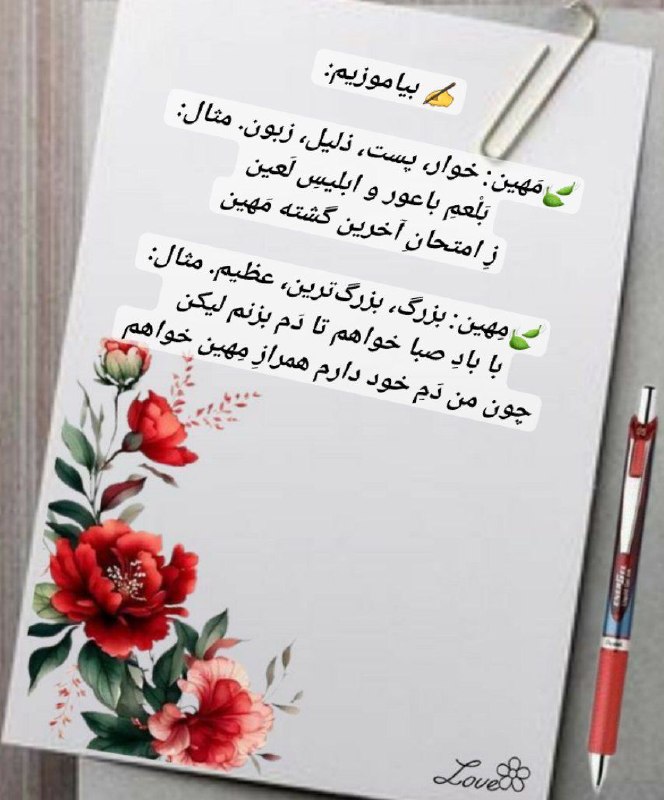 ✍️ بیاموزیم:
🍃مَهین: خوار، پست، ذلیل، زبون. مثال:
بَلْعمِ باعور و ابلیسِ لَعین
زِ امتحانِ آخرین گشته مَهین
🍃مِهین: بزرگ، بزرگ‌ترین، عظیم. مثال:
با بادِ صبا خواهم تا دَم بزنم لیکن
چون من دَمِ خود دارم همرازِ مِهین خواهم
Love